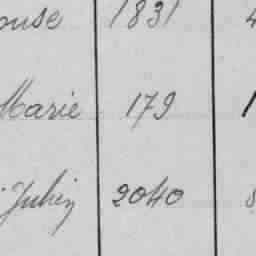 ouse 1831 4
Marie 179 1
Julien 2040